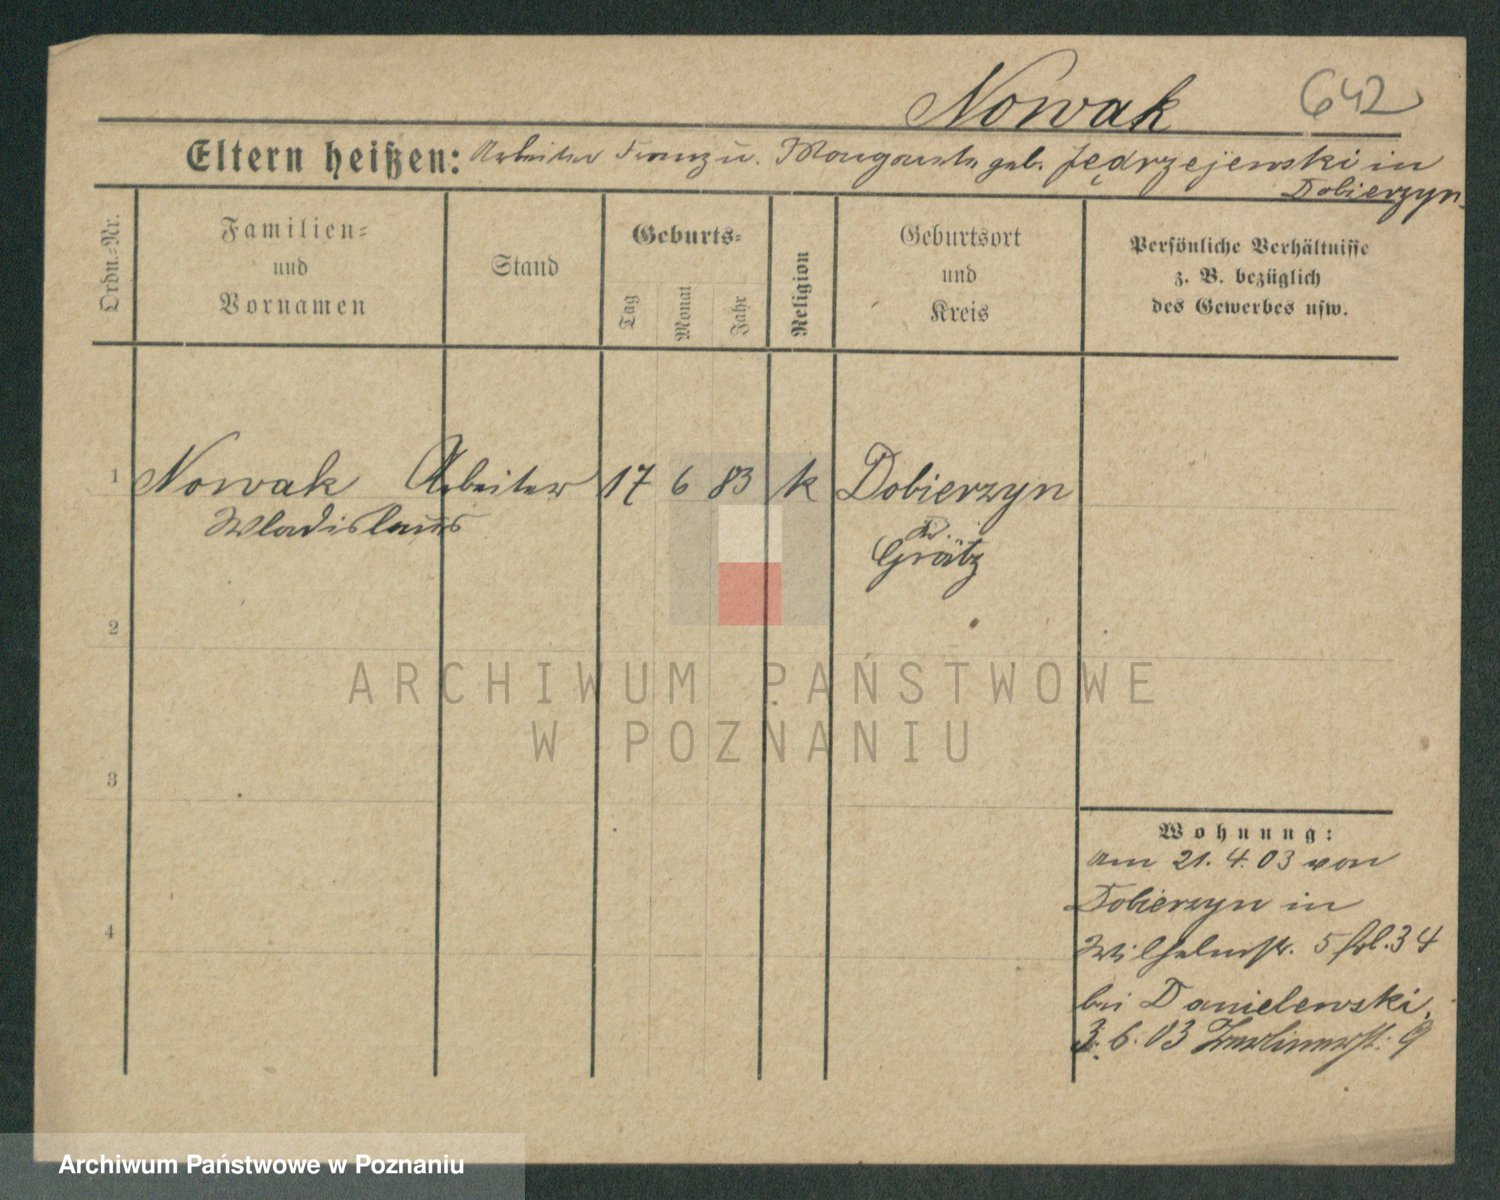 Nowak 642
Eltern heißen: Arbeiter Franz u. Margareta geb. Jędrzejewski in
Dobierzyn.
Ordn.-Nr.
Familien-
und
Vornamen
Stand
Geburts-
Tag
Monat
Jahr
Religion
Geburtsort
und
Kreis
Persönliche Verhältnisse
z. B. bezüglich
des Gewerbes usw.
1 Nowak Arbeiter 17 6 83 k Dobierzyn
Wladislaus
Kr.
Grätz
2
3
4
Wohnung:
Am 21. 4. 03 von
Dobierzyn in
Wilhelmstr. 5 34
bei Danielewski.
3. 6. 03 9
ARCHIWUM PAŃSTWOWE
W POZNANIU
Archiwum Państwowe w Poznaniu